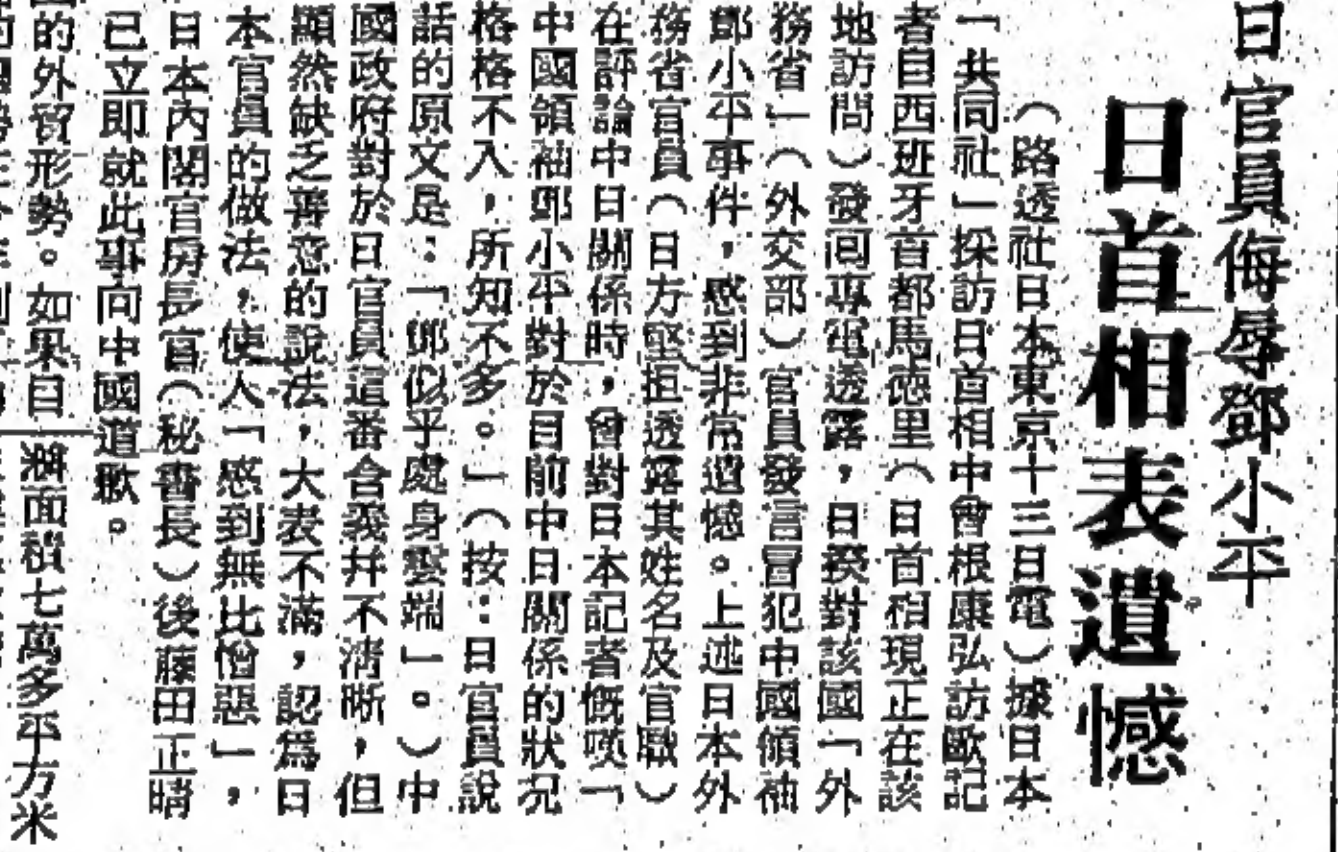 日官員侮辱鄧小平
日首相表遺憾
（路透社日本東京十三日電）據日本
「共同社」採訪日首相中曾根康弘訪歐記
者自西班牙首都馬德里（日首相現正在該
地訪問）發回專電透露，日揆對該國「外
務省」（外交部）官員發言冒犯中國領袖
鄧小平事件，感到非常遺憾。上述日本外
務省官員（日方堅拒透露其姓名及官職）
在評論中日關係時，曾對日本記者慨嘆「
中國領袖鄧小平對於目前中日關係的狀況
格格不入，所知不多。」（按：日官員說
話的原文是：「鄧似乎處身雲端」。）中
國政府對於日官員這番含義幷不清晰，但
顯然缺乏善意的說法，大表不滿，認爲日
本官員的做法，使人「感到無比憎惡」，
日本內閣官房長官（秘書長）後藤田正晴
已立即就此事向中國道歉。
的外貿形勢。如果自
湖面積七萬多平方米